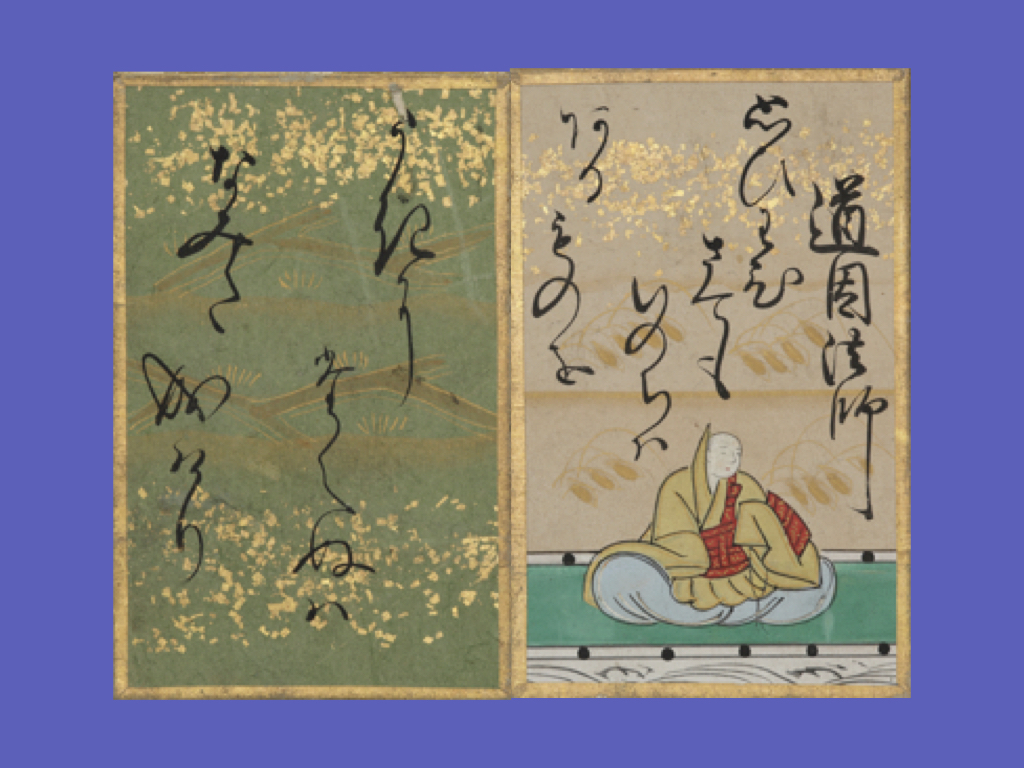 道因法師
思ひわひ
さても
いのちハ
ある
ものを
うきに
たへぬハ
なみた
也けり